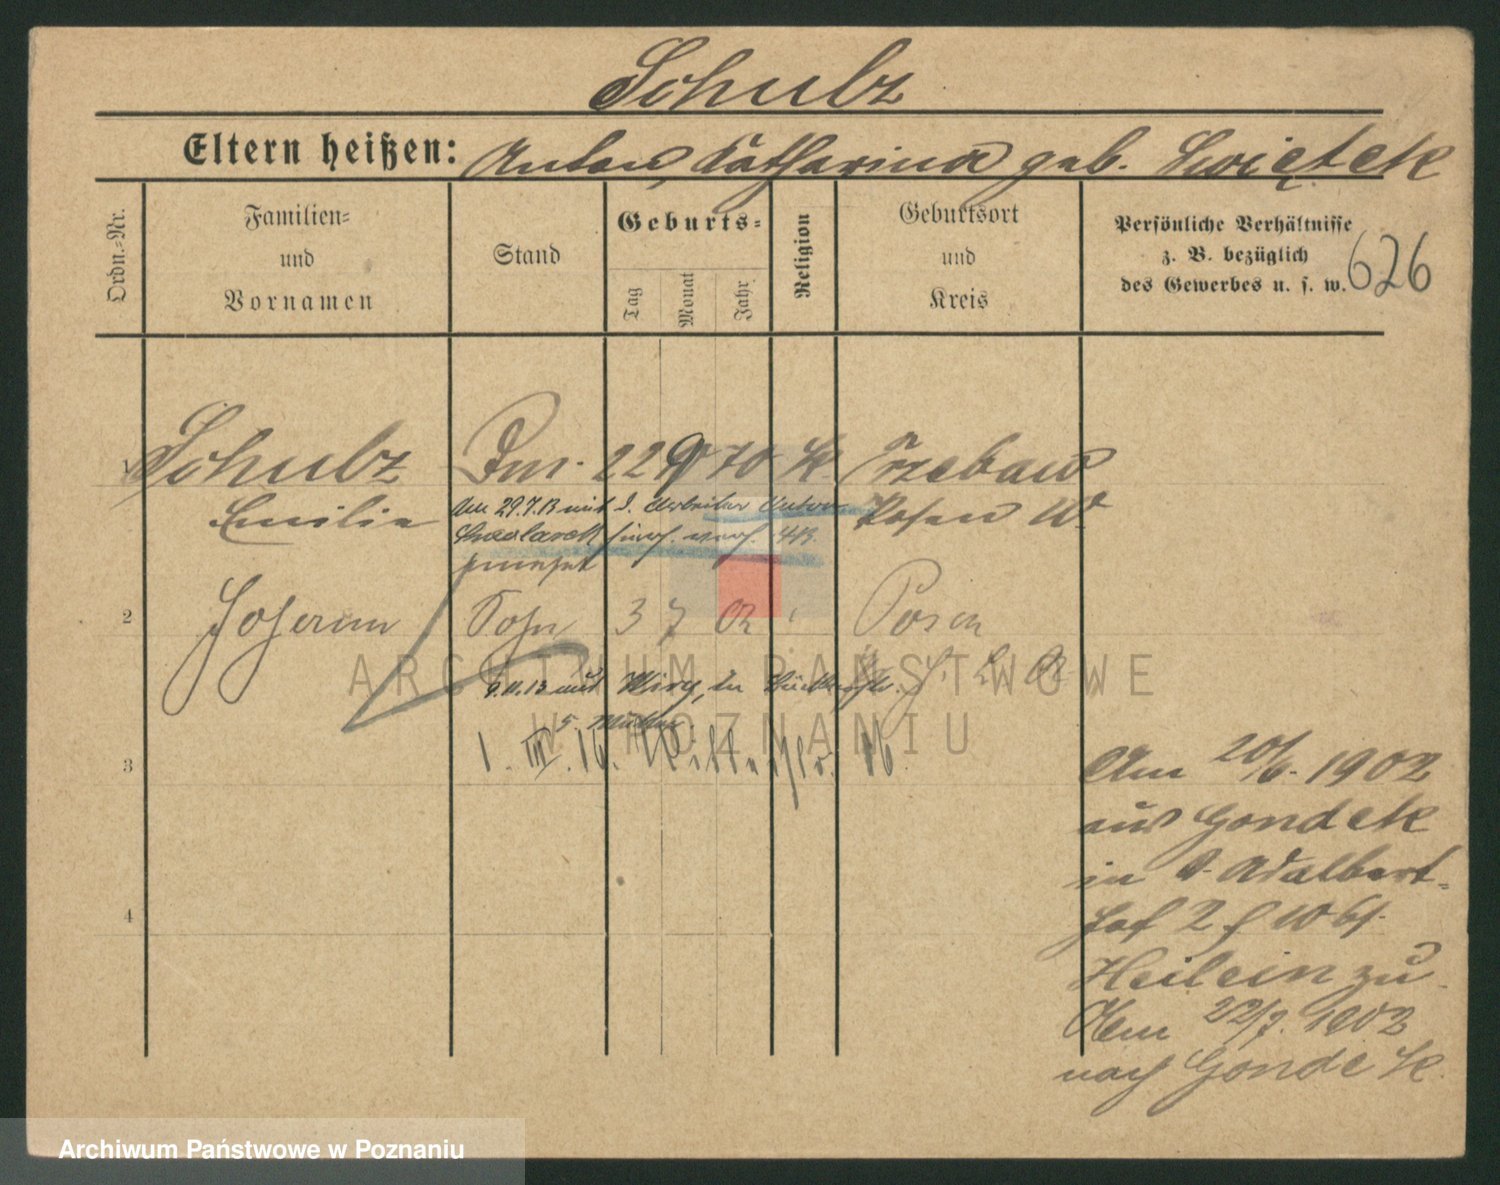 Schulz
Eltern heißen: Anton, Katharina geb. Swiętek
Ordn.-Nr.
Familien-
und
Vornamen
Stand
Geburts-
Tag
Monat
Jahr
Religion
Geburtsort
und
Kreis
Persönliche Verhältnisse
z. B. bezüglich
des Gewerbes u. s. w.
626
1 Schulz 22 9 70 K. Trzebaw
Emilie Posen W.
Am 29.7.13 mit d. Arbeiter Anton
2 Sohn 3 7 02 Posen
9.11.13 aus
5. Mutter.
1. III. 16. 16.
3
Am 20/6. 1902
aus Gondek
in St. Adalbert-
hof 2 f
Heilein zu
Am 22/7. 1902
nach Gondek.
4
ARCHIWUM PAŃSTWOWE
W POZNANIU
Archiwum Państwowe w Poznaniu